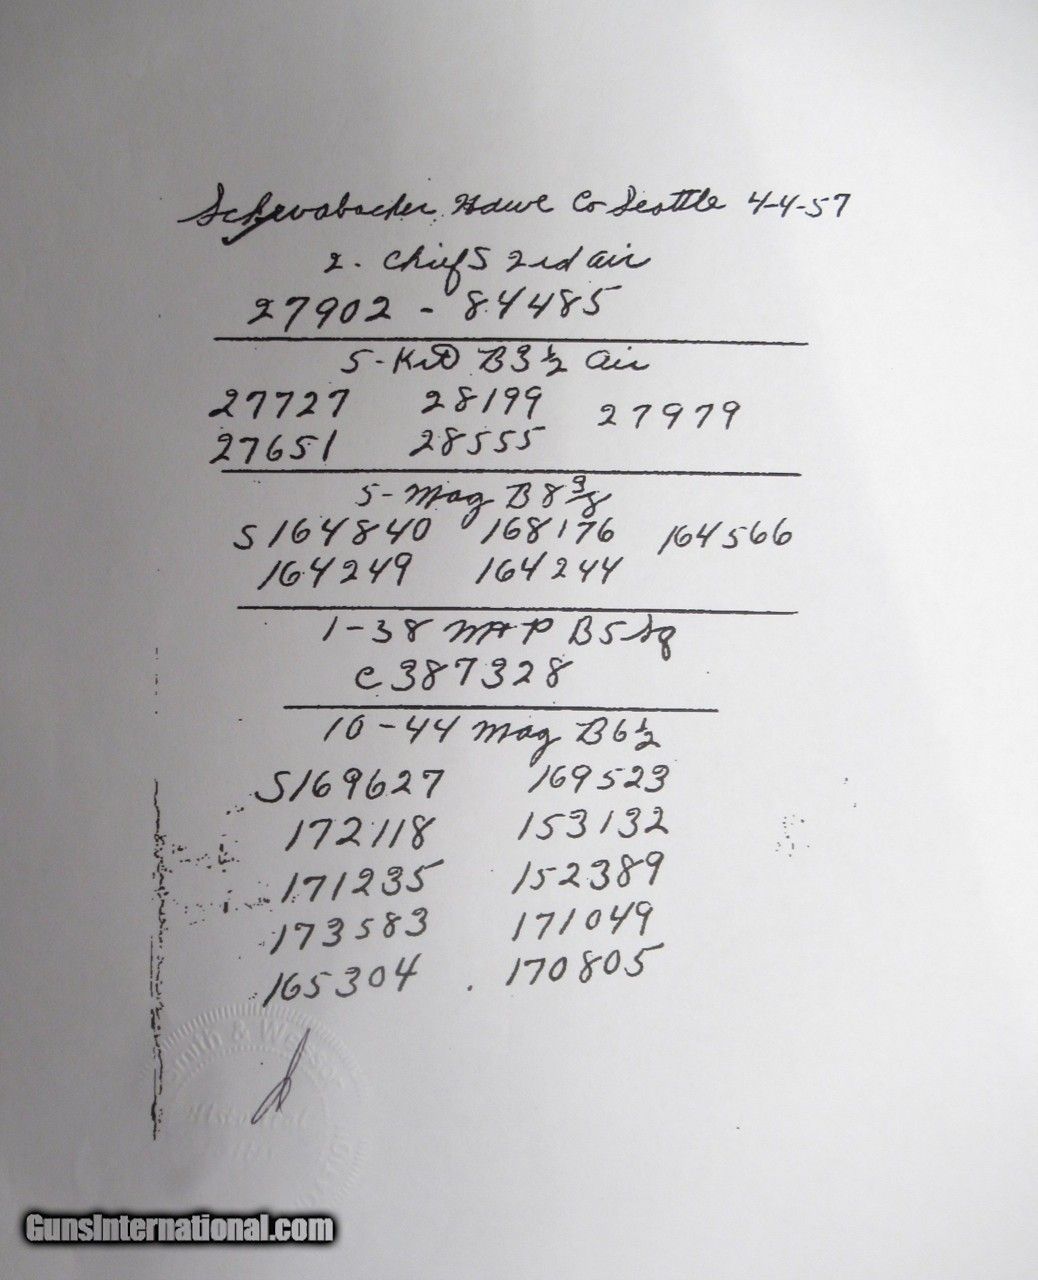 Schwabacher Hdwe Co Seattle 4-4-57
2. Chiefs 2 rd air
27902 - 84485
5-Kit B3½ Air
27727 28199 27979
27651 28555
5- Mag B8⅜
S164840 168176 164566
164249 164244
1-38 M+P B5 Sq
C387328
10-44 Mag B6½
S169627 169523
172118 153132
171235 152389
173583 171049
165304 . 170805
Smith & Wesson
Historical
GunsInternational.com